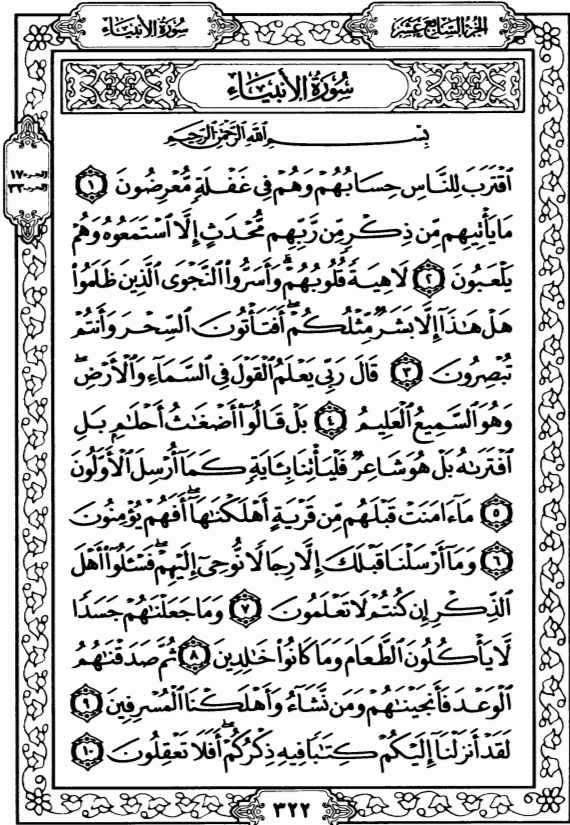 سُورَةُ الأَنبِيَاء
الجُزءُ السَّابِعُ عَشَر
سُورَةُ الأَنبِيَاء
الجزء ١٧
الحزب ٣٣
بِسْمِ ٱللَّهِ ٱلرَّحْمَٰنِ ٱلرَّحِيمِ
ٱقْتَرَبَ لِلنَّاسِ حِسَابُهُمْ وَهُمْ فِى غَفْلَةٍ مُّعْرِضُونَ ١
مَا يَأْتِيهِم مِّن ذِكْرٍ مِّن رَّبِّهِم مُّحْدَثٍ إِلَّا ٱسْتَمَعُوهُ وَهُمْ
يَلْعَبُونَ ٢ لَاهِيَةً قُلُوبُهُمْ ۗ وَأَسَرُّوا۟ ٱلنَّجْوَى ٱلَّذِينَ ظَلَمُوا۟
هَلْ هَٰذَآ إِلَّا بَشَرٌ مِّثْلُكُمْ ۖ أَفَتَأْتُونَ ٱلسِّحْرَ وَأَنتُمْ
تُبْصِرُونَ ٣ قَالَ رَبِّى يَعْلَمُ ٱلْقَوْلَ فِى ٱلسَّمَآءِ وَٱلْأَرْضِ ۖ
وَهُوَ ٱلسَّمِيعُ ٱلْعَلِيمُ ٤ بَلْ قَالُوٓا۟ أَضْغَٰثُ أَحْلَٰمٍۭ بَلِ
ٱفْتَرَىٰهُ بَلْ هُوَ شَاعِرٌ فَلْيَأْتِنَا بِـَٔايَةٍ كَمَآ أُرْسِلَ ٱلْأَوَّلُونَ
٥ مَآ ءَامَنَتْ قَبْلَهُم مِّن قَرْيَةٍ أَهْلَكْنَٰهَآ ۖ أَفَهُمْ يُؤْمِنُونَ
٦ وَمَآ أَرْسَلْنَا قَبْلَكَ إِلَّا رِجَالًا نُّوحِىٓ إِلَيْهِمْ ۖ فَسْـَٔلُوٓا۟ أَهْلَ
ٱلذِّكْرِ إِن كُنتُمْ لَا تَعْلَمُونَ ٧ وَمَا جَعَلْنَٰهُمْ جَسَدًا
لَّا يَأْكُلُونَ ٱلطَّعَامَ وَمَا كَانُوا۟ خَٰلِدِينَ ٨ ثُمَّ صَدَقْنَٰهُمُ
ٱلْوَعْدَ فَأَنجَيْنَٰهُمْ وَمَن نَّشَآءُ وَأَهْلَكْنَا ٱلْمُسْرِفِينَ ٩
لَقَدْ أَنزَلْنَآ إِلَيْكُمْ كِتَٰبًا فِيهِ ذِكْرُكُمْ ۖ أَفَلَا تَعْقِلُونَ ١٠
٣٢٢